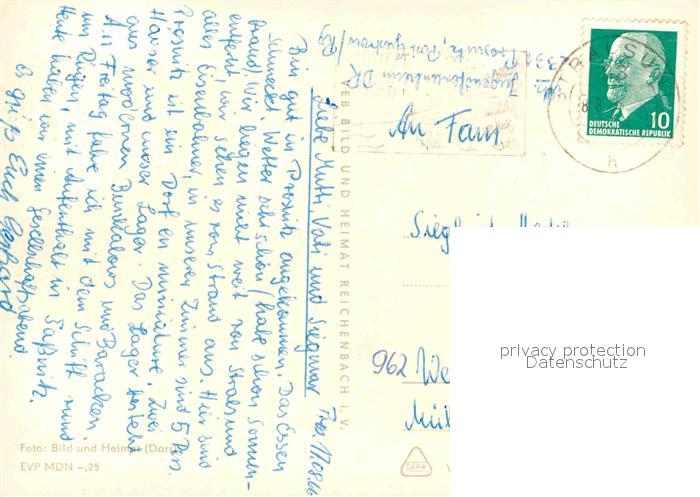 Pro. 17.08.66
Liebe Mutti, Vati und Siegmar
Bin gut in Prosnitz angekommen. Das Essen
schmeckt. Wetter sehr schön (habe schon Sonnen-
brand). Wir liegen nicht weit von Stralsund
entfernt, wir sehen es vom Strand aus. Hier sind
alles Eisenbahner, in unseren Zimmer sind 5 Pers.
Prosnitz ist ein Dorf en miniature. Zwei
Häuser und unser Lager. Das Lager besteht
aus modernen Bungalows und Baracken.
Am Freitag fahre ich mit dem Schiff rund
um Rügen, mit Aufenthalt in Saßnitz.
Heute haben wir einen Gesellschaftsabend.
Es grüßt Euch
VEB BILD UND HEIMAT REICHENBACH I. V.
2331 Prosnitz, Post Gustow/Rg
STRALSU
h
DEUTSCHE
DEMOKRATISCHE REPUBLIK
10
An Fam.
962 We
Mül
privacy protection
Datenschutz
Foto: Bild und Heimat (Darr
EVP MDN -,25